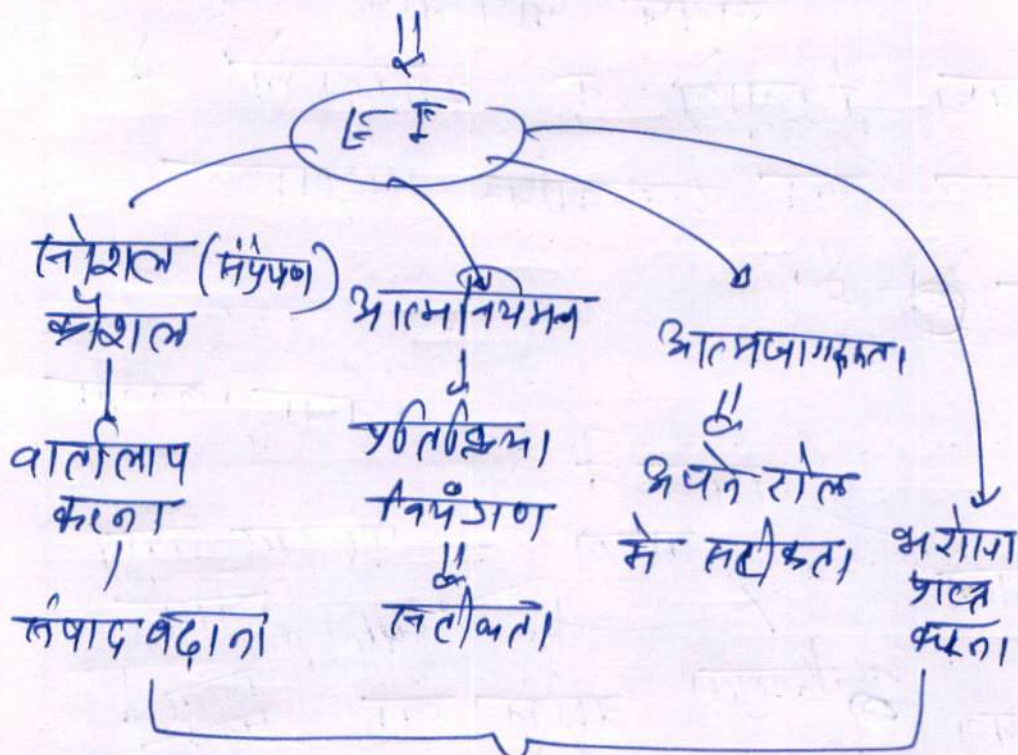 E I
सोशल (संप्रेषण)
कौशल
वार्तालाप
करना
संवाद बढ़ाना
आत्मनियमन
प्रतिक्रिया
नियंत्रण
सटीकता
आत्मजागरूकता
अपने रोल
मे सटीकता
भरोसा
प्राप्त
करना